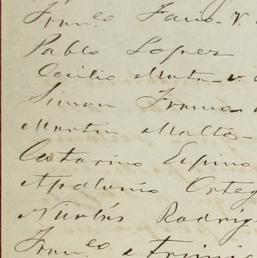 Franco Fano. v.
Pablo Lopez
Cecilio Mata. v.
Simon Franco
Martin Matto
Catarino Espino
Apolonio Orteg
Nicolás Rodrig
Franco